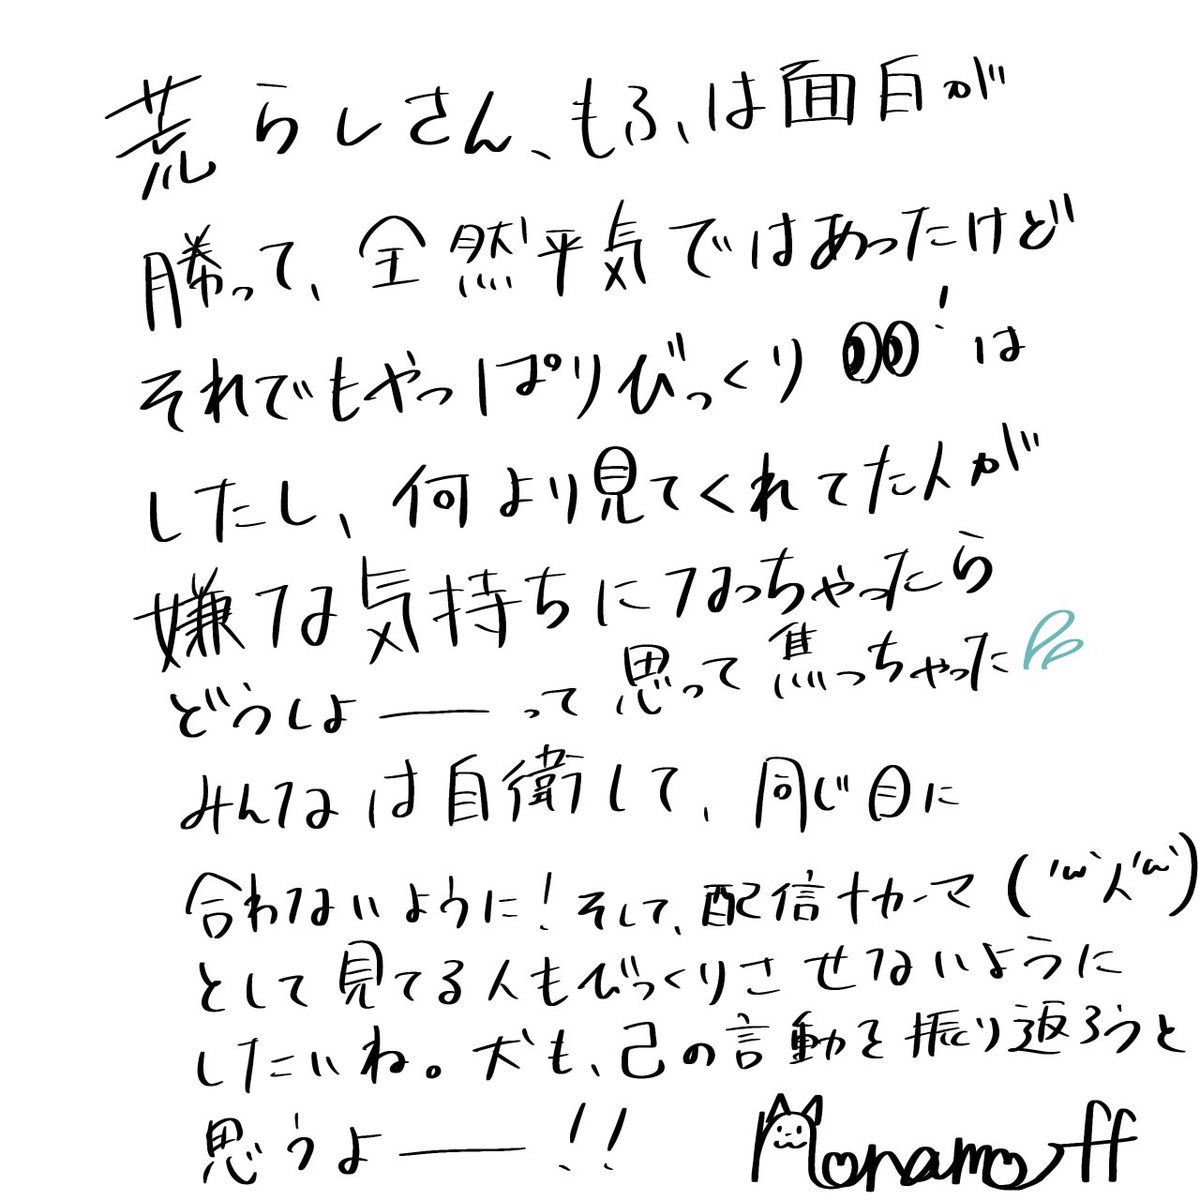 荒らしさん、もふ、は面白が
勝って、全然平気ではあったけど
それでもやっぱりびっくり👀!は
したし、何より見てくれてた人が
嫌な気持ちになっちゃったら
どうしよーって思って焦っちゃった💦
みんなは自衛して、同じ目に
合わないように!そして、配信ナカーマ(´ω`人´ω`)
として見てる人もびっくりさせないように
したいね。犬も、己の言動を振り返ろうと
思うよー!!
Monamoff